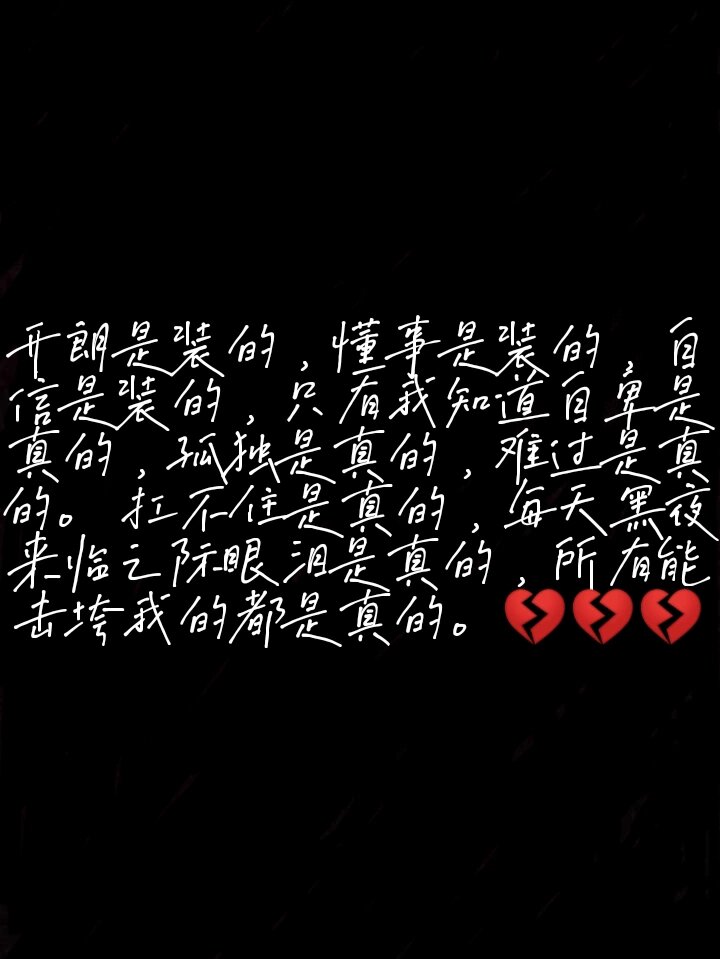 开朗是装的，懂事是装的，自
信是装的，只有我知道自卑是
真的，孤独是真的，难过是真
的。扛不住是真的，每天黑夜
来临之际眼泪是真的，所有能
击垮我的都是真的。💔💔💔